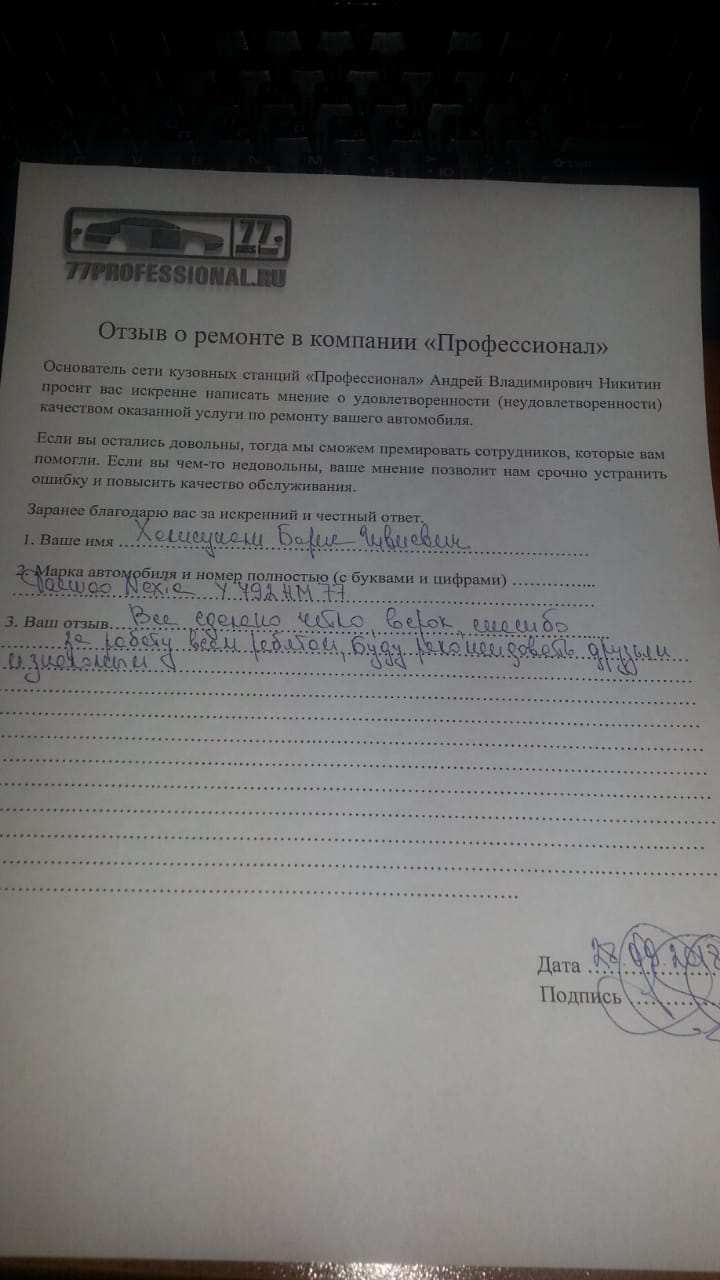 77
77PROFESSIONAL.RU
Отзыв о ремонте в компании «Профессионал»
Основатель сети кузовных станций «Профессионал» Андрей Владимирович Никитин
просит вас искренне написать мнение о удовлетворенности (неудовлетворенности)
качеством оказанной услуги по ремонту вашего автомобиля.
Если вы остались довольны, тогда мы сможем премировать сотрудников, которые вам
помогли. Если вы чем-то недовольны, ваше мнение позволит нам срочно устранить
ошибку и повысить качество обслуживания.
Заранее благодарю вас за искренний и честный ответ.
1. Ваше имя
2. Марка автомобиля и номер полностью (с буквами и цифрами)
Daewoo Nexia У 492 НМ 77
3. Ваш отзыв Все сделано четко, спасибо
за работу всем ребятам, буду рекомендовать друзьям
и знакомым
Дата 28.09.2018
Подпись